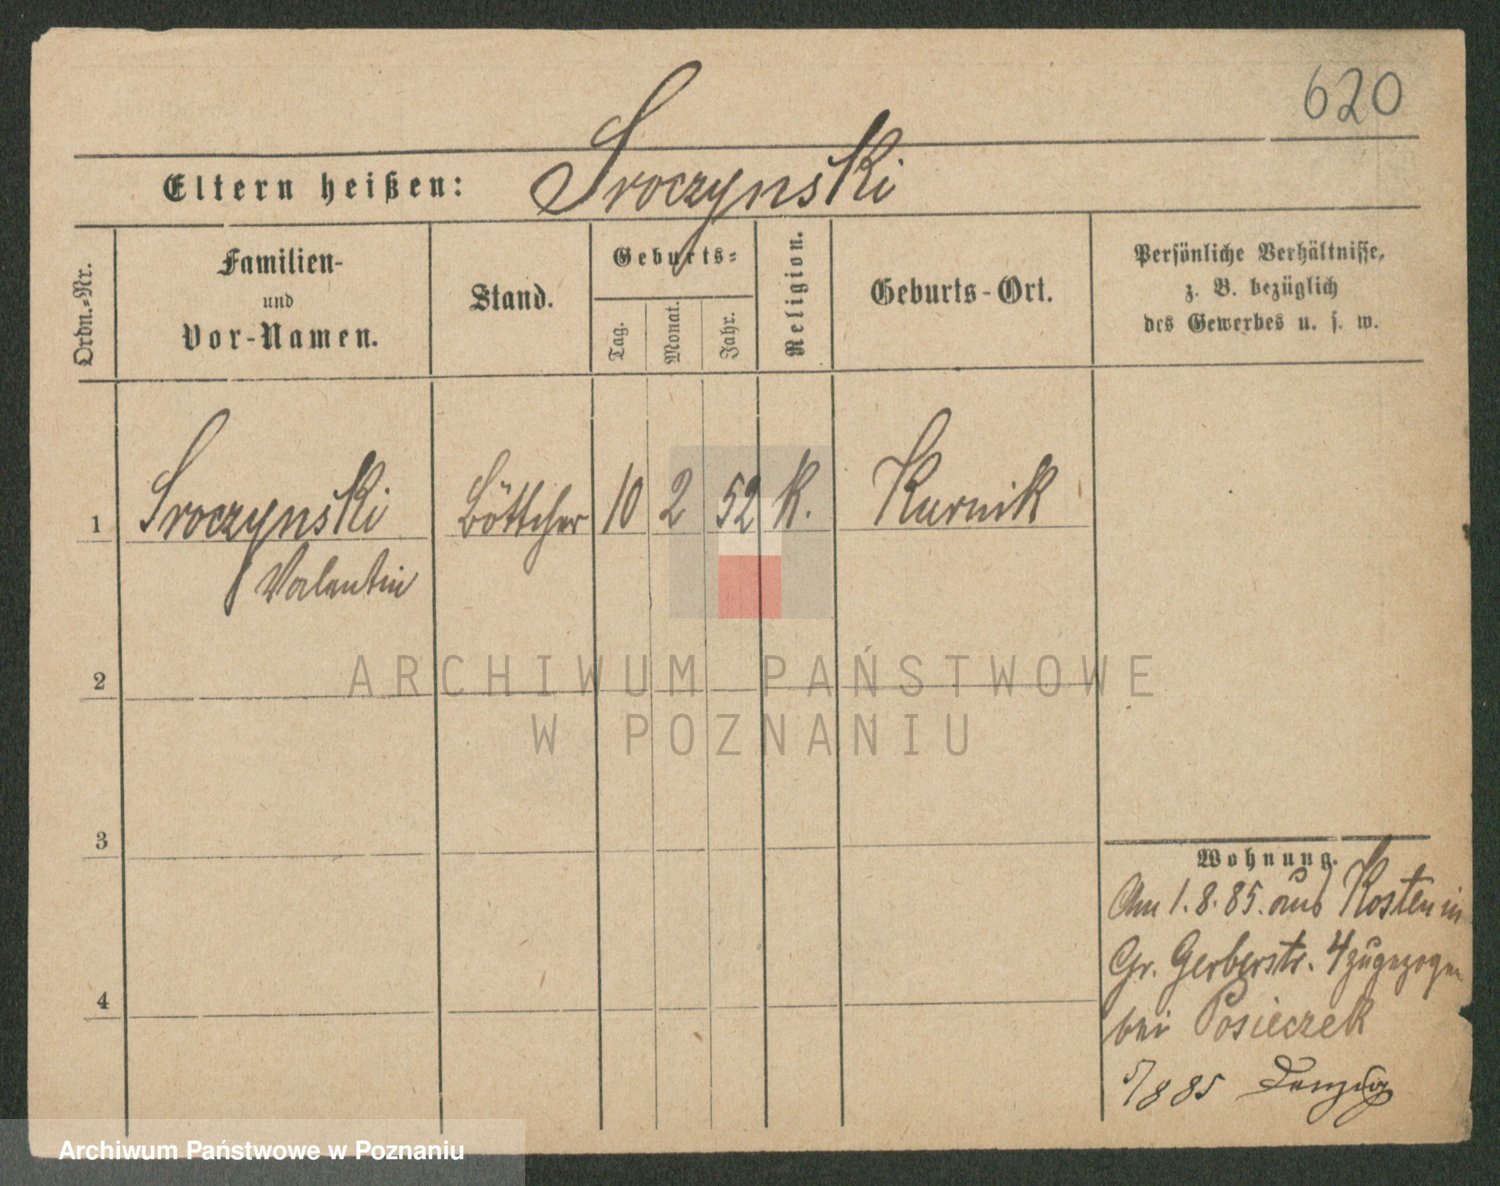 620
Eltern heißen: Sroczynski
Ordn.-Nr.
Familien-
und
Vor-Namen.
Stand.
Geburts-
Tag.
Monat.
Jahr.
Religion.
Geburts-Ort.
Persönliche Verhältnisse,
z. B. bezüglich
des Gewerbes u. s. w.
1 Sroczynski Böttcher 10 2 52 K. Kurnik
Valentin
2
3
4
Wohnung.
Am 1.8.85. aus Kosten in
Gr. Gerberstr. 4 zugezogen
bei Posieczek
5/8 85 Danzig
ARCHIWUM PAŃSTWOWE
W POZNANIU
Archiwum Państwowe w Poznaniu